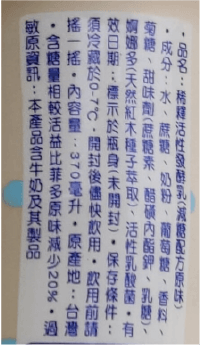 ・品名：稀釋活性發酵乳(減糖配方原味)
・成分：水、蔗糖、奶粉、葡萄糖、香料、
菊糖、甜味劑(蔗糖素、醋磺內酯鉀、乳糖)、
婀娜多(天然紅木種子萃取)、活性乳酸菌・有
效日期：標示於瓶身(未開封)・保存條件：
須冷藏於0-7℃，開封後儘快飲用・飲用前請
搖一搖・內容量：370毫升・原產地：台灣
・含糖量相較活益比菲多原味減少20%・過
敏原資訊：本產品含牛奶及其製品